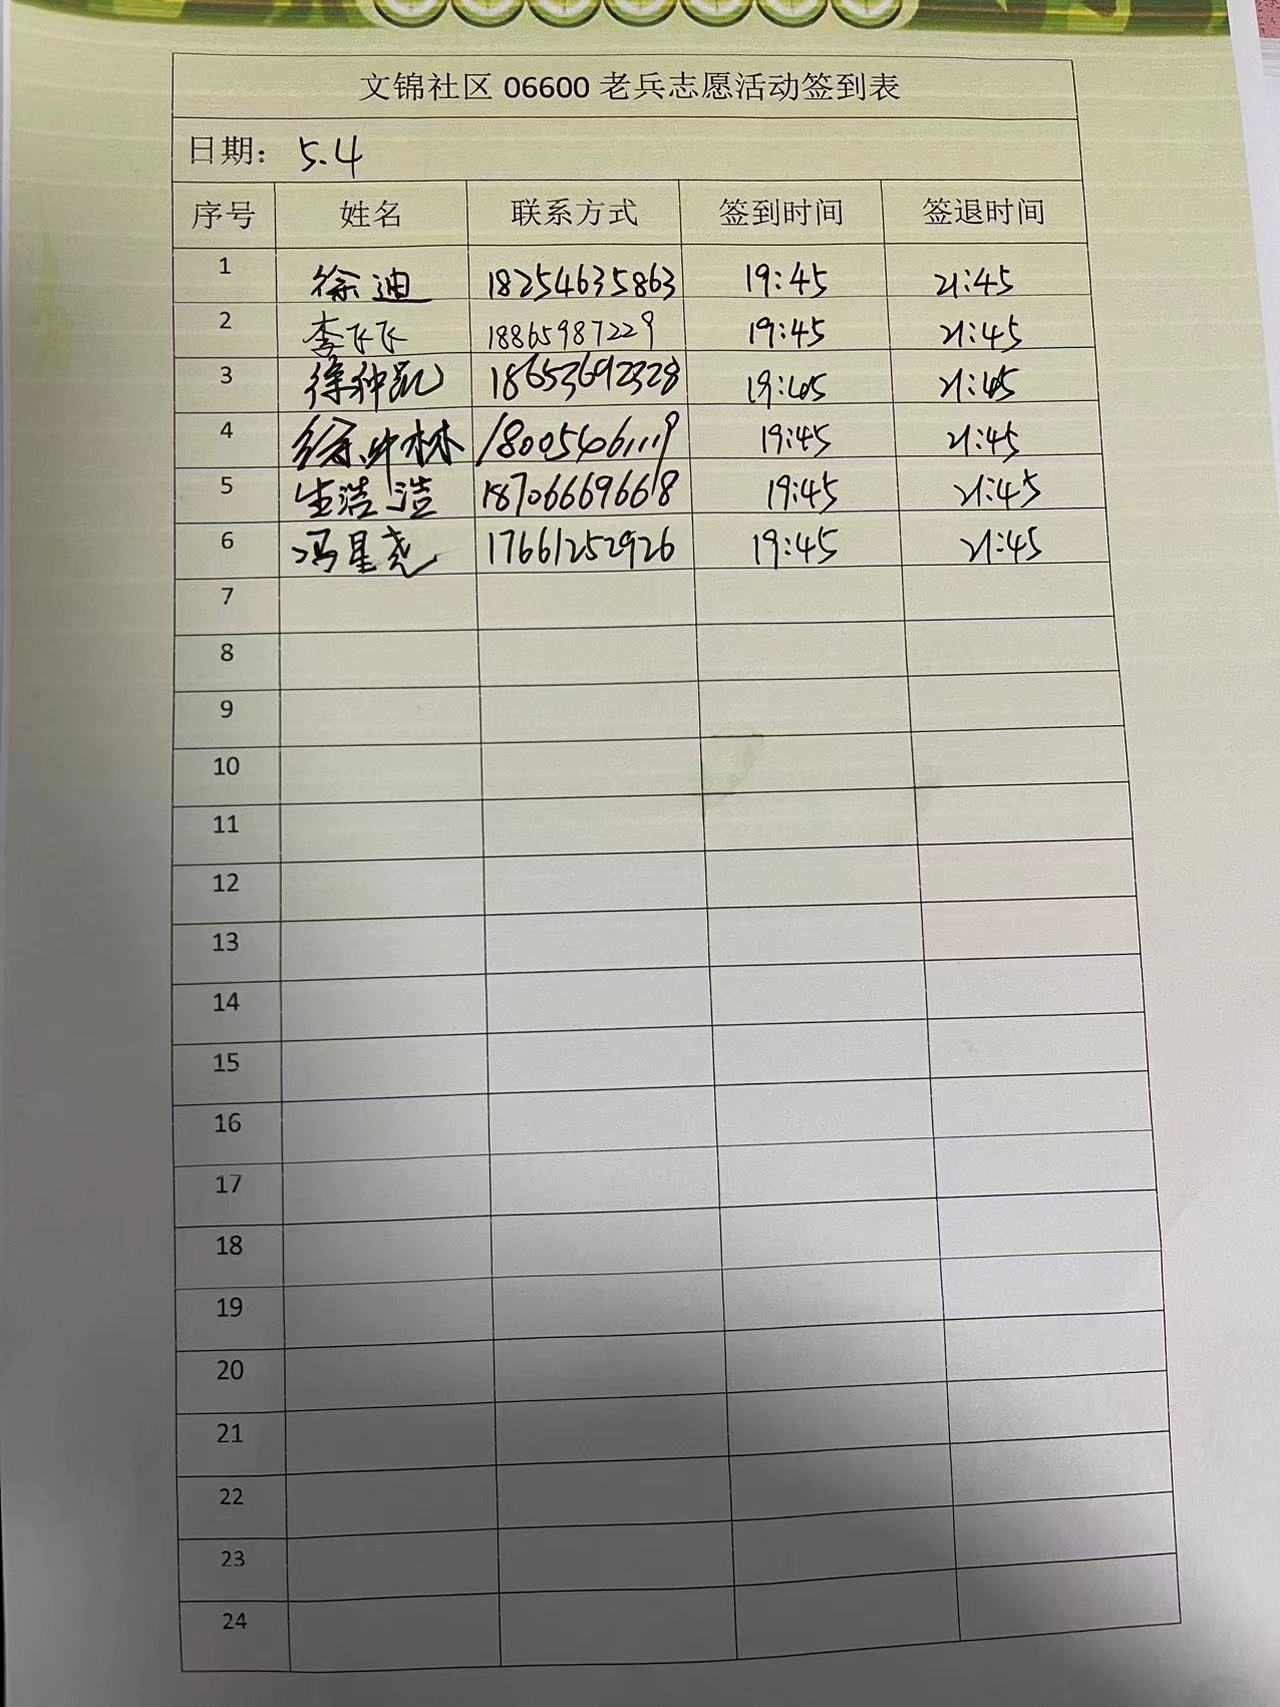 文锦社区 06600 老兵志愿活动签到表
日期： 5.4
序号 姓名 联系方式 签到时间 签退时间
1 徐迪 18254635863 19:45 21:45
2 李飞飞 18865987229 19:45 21:45
3 徐仲凯 18653692328 19:45 21:45
4 18005461119 19:45 21:45
5 生浩浩 18706669668 19:45 21:45
6 冯星尧 17661252926 19:45 21:45
7
8
9
10
11
12
13
14
15
16
17
18
19
20
21
22
23
24